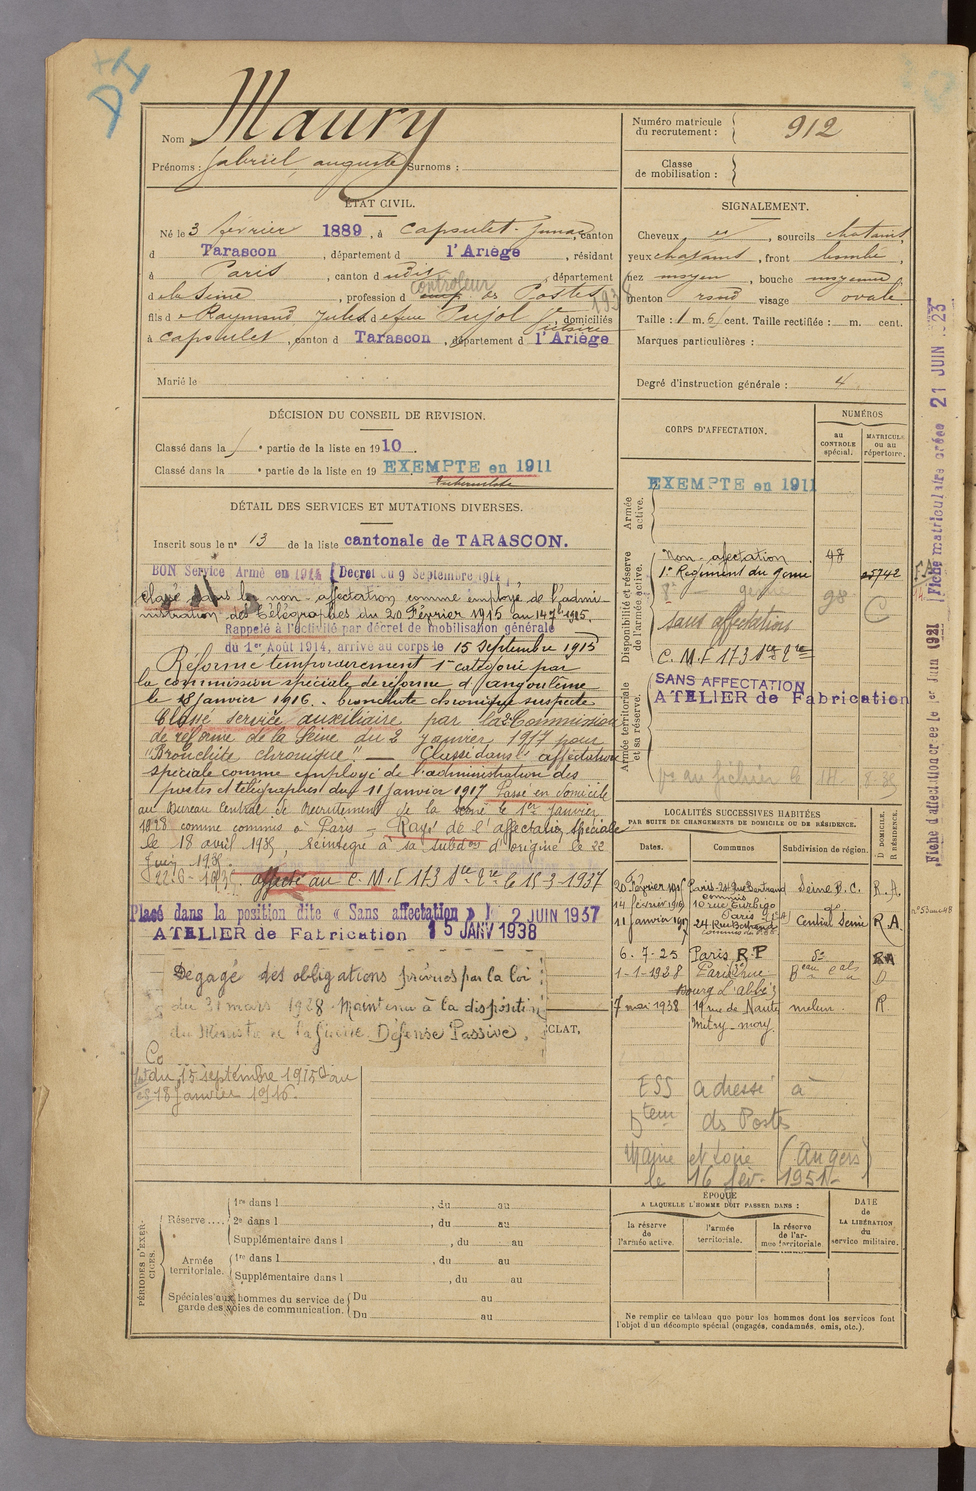 D I
Nom Maury
Prénoms : Gabriel, auguste Surnoms :
Numéro matricule du recrutement : 912
Classe de mobilisation :
ÉTAT CIVIL.
Né le 3 février 1889, à Capoulet-Junac, canton
d Tarascon, département d l'Ariège, résidant
à Paris, canton d udit, département
d e la Seine, profession d controleur des Postes
fils d e Raymond Jules et d e feue Pujol, domiciliés
à Capoulet, canton d Tarascon, département d l'Ariège
Marié le
SIGNALEMENT.
Cheveux et, sourcils chatains,
yeux chatains, front bombé,
nez moyen, bouche moyenne,
menton rond visage ovale.
Taille : 1 m. 61 cent. Taille rectifiée : m. cent.
Marques particulières :
Degré d'instruction générale : 4
DÉCISION DU CONSEIL DE REVISION.
Classé dans la 1 e partie de la liste en 1910.
Classé dans la e partie de la liste en 19 EXEMPTE en 1911
DÉTAIL DES SERVICES ET MUTATIONS DIVERSES.
Inscrit sous le n° 13 de la liste cantonale de TARASCON.
BON Service Armé en 1914 (Decret du 9 Septembre 1914)
classé dans la non-affectation comme employé de l'admi-
nistration des Télégraphes du 20 Février 1915 au 14 7bre 1915.
Rappelé à l'activité par décret de mobilisation générale
du 1er Août 1914, arrivé au corps le 15 septembre 1915
Réformé temporairement 1re catégorie par
la commission spéciale de réforme d'Angoulême
le 18 janvier 1916. bronchite chronique suspecte
Classé service auxiliaire par la 2e Commission
de réforme de la Seine du 2 janvier 1917 pour
"Bronchite chronique" — Classé dans l'affectation
spéciale comme employé de l'administration des
postes et télégraphes du 11 janvier 1917 Passé en domicile
au Bureau Central de Recrutement de la Seine le 1er janvier
1928 comme commis à Paris - Rayé de l'affectation spéciale
le 18 avril 1935, réintégré à sa subdon d'origine le 22
Juin 1935.
22-6-1935. affecté au C. M. I 173 le 15-3-1937
Placé dans la position dite « Sans affectation » le 2 JUIN 1937
ATELIER de Fabrication 15 JANV 1938
Degagé des obligations prévues par la loi
du 31 mars 1928. Maintenu à la disposition
du Ministre de la guerre. Défense Passive.
CLAT,
Co
du 15 septembre 1915 au
18 Janvier 1916.
CORPS D'AFFECTATION.
NUMÉROS
au CONTROLE spécial.
MATRICULE ou au répertoire.
Armée active.
EXEMPTE en 1911
Disponibilité et réserve de l'armée active.
Non-affectation 48
1er Régiment du Génie 25742
8e génie 98
Sans affectation
C. M. I 173
Armée territoriale et sa réserve.
SANS AFFECTATION
ATELIER de Fabrication
vu au fichier le 14-8-35
LOCALITÉS SUCCESSIVES HABITÉES
PAR SUITE DE CHANGEMENTS DE DOMICILE OU DE RÉSIDENCE.
Dates. Communes Subdivision de région. D DOMICILE, R RÉSIDENCE.
20 Février 1915 Paris. 21 Rue Bertrand Seine B. C. R.A.
14 février 1916 10 rue Turbigo do
11 janvier 1917 24 Rue Bertrand Central Seine R.A.
6. 7-23 Paris R.P do RA
1-1-1928 Paris rue Beau cal D
Bourg l'abbé 3
7 mai 1938 19 rue de Nantes melun. R.
Mitry-mory
ESS adressé à
Dteur des Postes
Maine et Loire (Angers)
le 16 fév. 1951.
PÉRIODES D'EXERCICES.
Réserve....
1re dans l , du au
2e dans l , du au
Supplémentaire dans l , du au
Armée territoriale.
1re dans l , du au
Supplémentaire dans l , du au
Spéciales aux hommes du service de garde des voies de communication.
Du au
Du au
ÉPOQUE
A LAQUELLE L'HOMME DOIT PASSER DANS :
la réserve de l'armée active.
l'armée territoriale.
la réserve de l'armée territoriale
DATE DE LA LIBÉRATION du service militaire.
Ne remplir ce tableau que pour les hommes dont les services font
l'objet d'un décompte spécial (engagés, condamnés, omis, etc.).
Fiche d'affectation créée le 1er Juin 1921
Fiche matriculaire créée 21 JUIN 1923